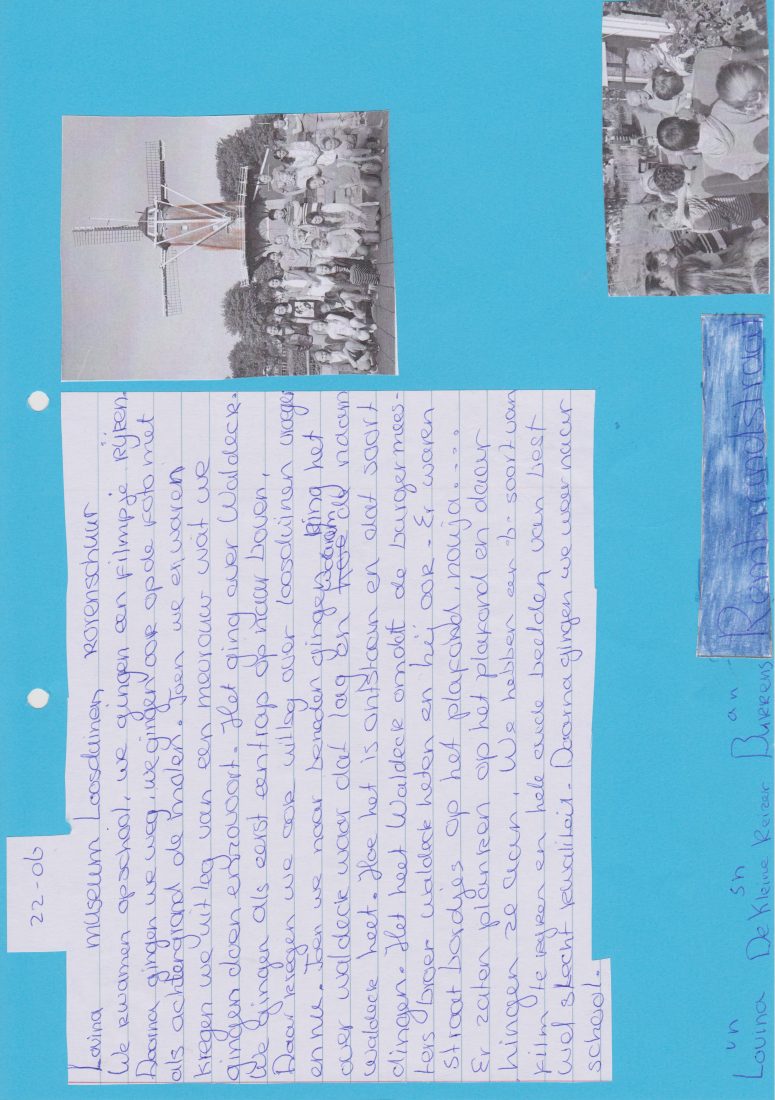 22-06
Lovina museum Loosduinen korenschuur
We kwamen op school, we gingen een Filmpje kijken.
Daarna gingen we weg, we gingen ook op de foto met
als achtergrond de molen. Toen we er waren
kregen we uitleg van een mevrouw wat we
gingen doen enzovoort. Het ging over Waldeck.
We gingen als eerst een trap op naar boven,
Daar kregen we ook uitleg over loosduinen vroeger
en nu. Toen we naar beneden gingen ging het
over waldeck waar dat lag en waarom de naam
waldeck heet. Hoe het is ontstaan en dat soort
dingen. Het heet Waldeck omdat de burgermees-
teis broer waldeck heten en hij ook. Er waren
straat bordjes op het plafond, nouja....
Er zaten planken op het plafond en daar
hingen ze aan. We hebben een soort van
Film te kijken en hele oude beelden van best
wel slecht kwaliteit. Daarna gingen we weer naar
school.
Lovina De Kleine Keizer